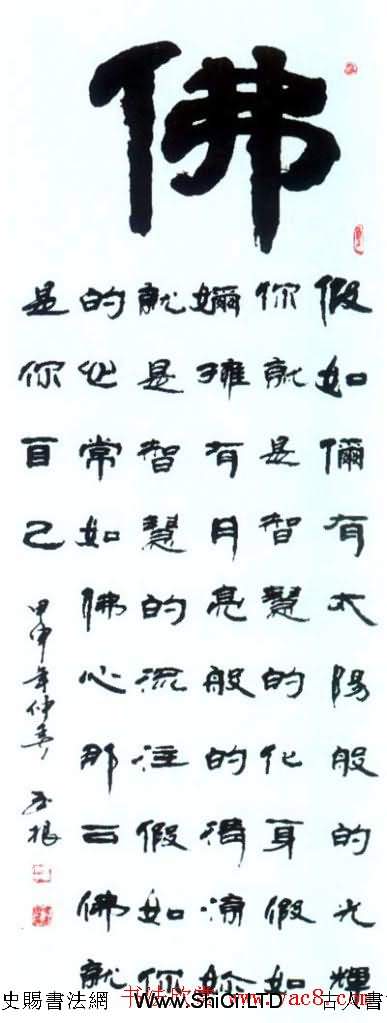 佛
假如儞有太陽般的光輝
你就是智慧的化身假如
嬭擁有月亮般的清淨妳
就是智慧的流注假如你
的心常如佛心那么佛就
是你自己
甲申年仲春
根
史賜書法網 书法欣赏 www.ShiCi.LTD www.yac8.com 古人書